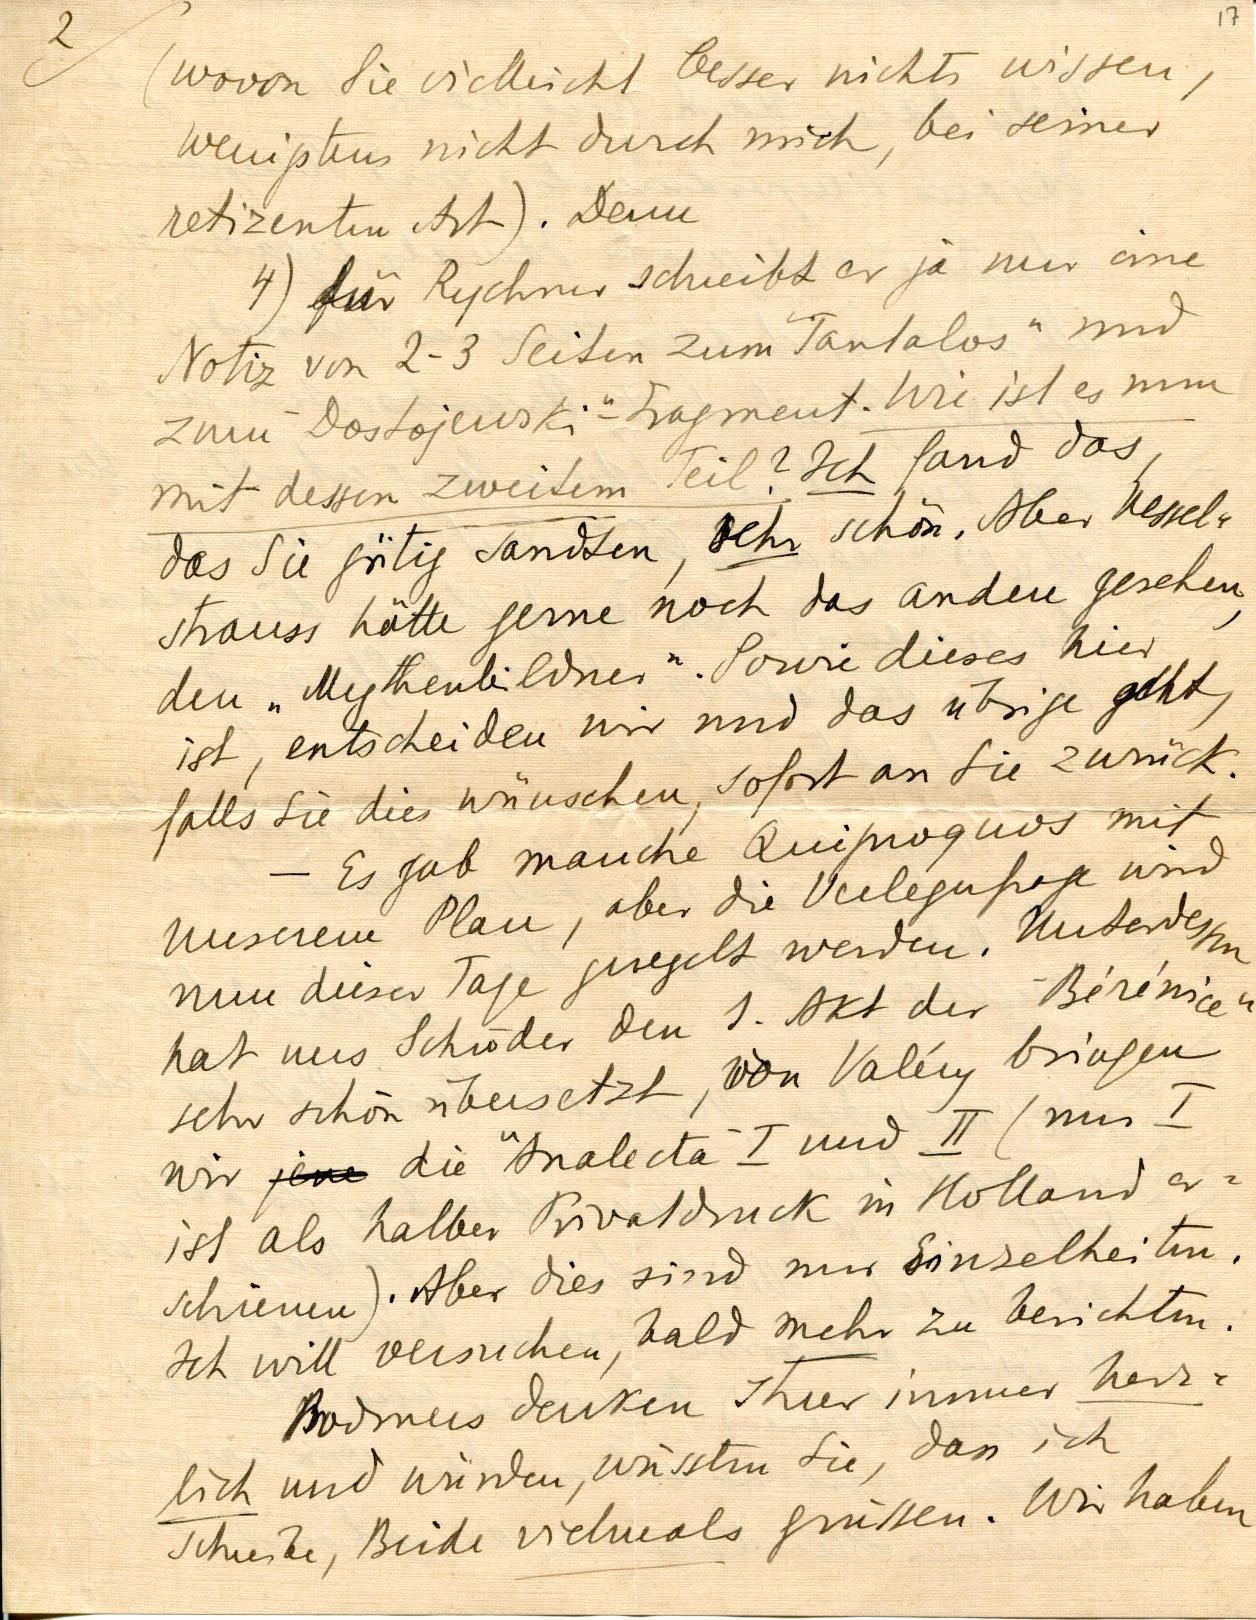 2
17
(wovon Sie vielleicht besser nichts wissen,
wenigstens nicht durch mich, bei seiner
retizenten Art). Denn
4) für Rychner schreibt er ja nur eine
Notiz von 2-3 Seiten zum "Tantalos" und
zum "Dostojewski"-Fragment. Wie ist es nun
mit dessen zweitem Teil? Ich fand das,
das Sie gütig sandten, sehr schön. Aber Nessel-
strauss hätte gerne noch das andere gesehen,
den „Mythenbildner". Sowie dieses hier
ist, entscheiden wir und das übrige geht,
falls Sie dies wünschen, sofort an Sie zurück.
— Es gab manche Quiproquos mit
unserem Plan, aber die Verlegerfrage wird
nun dieser Tage geregelt werden. Unterdessen
hat uns Schröder den 1. Akt der "Bérénice"
sehr schön übersetzt, von Valéry bringen
wir jene die "Analecta" I und II (nur I
ist als halber Privatdruck in Holland er=
schienen). Aber dies sind nur Einzelheiten.
Ich will versuchen, bald mehr zu berichten.
Bodmers denken Ihrer immer herz=
lich und würden, wüssten Sie, dass ich
schreibe, Beide vielmals grüssen. Wir haben